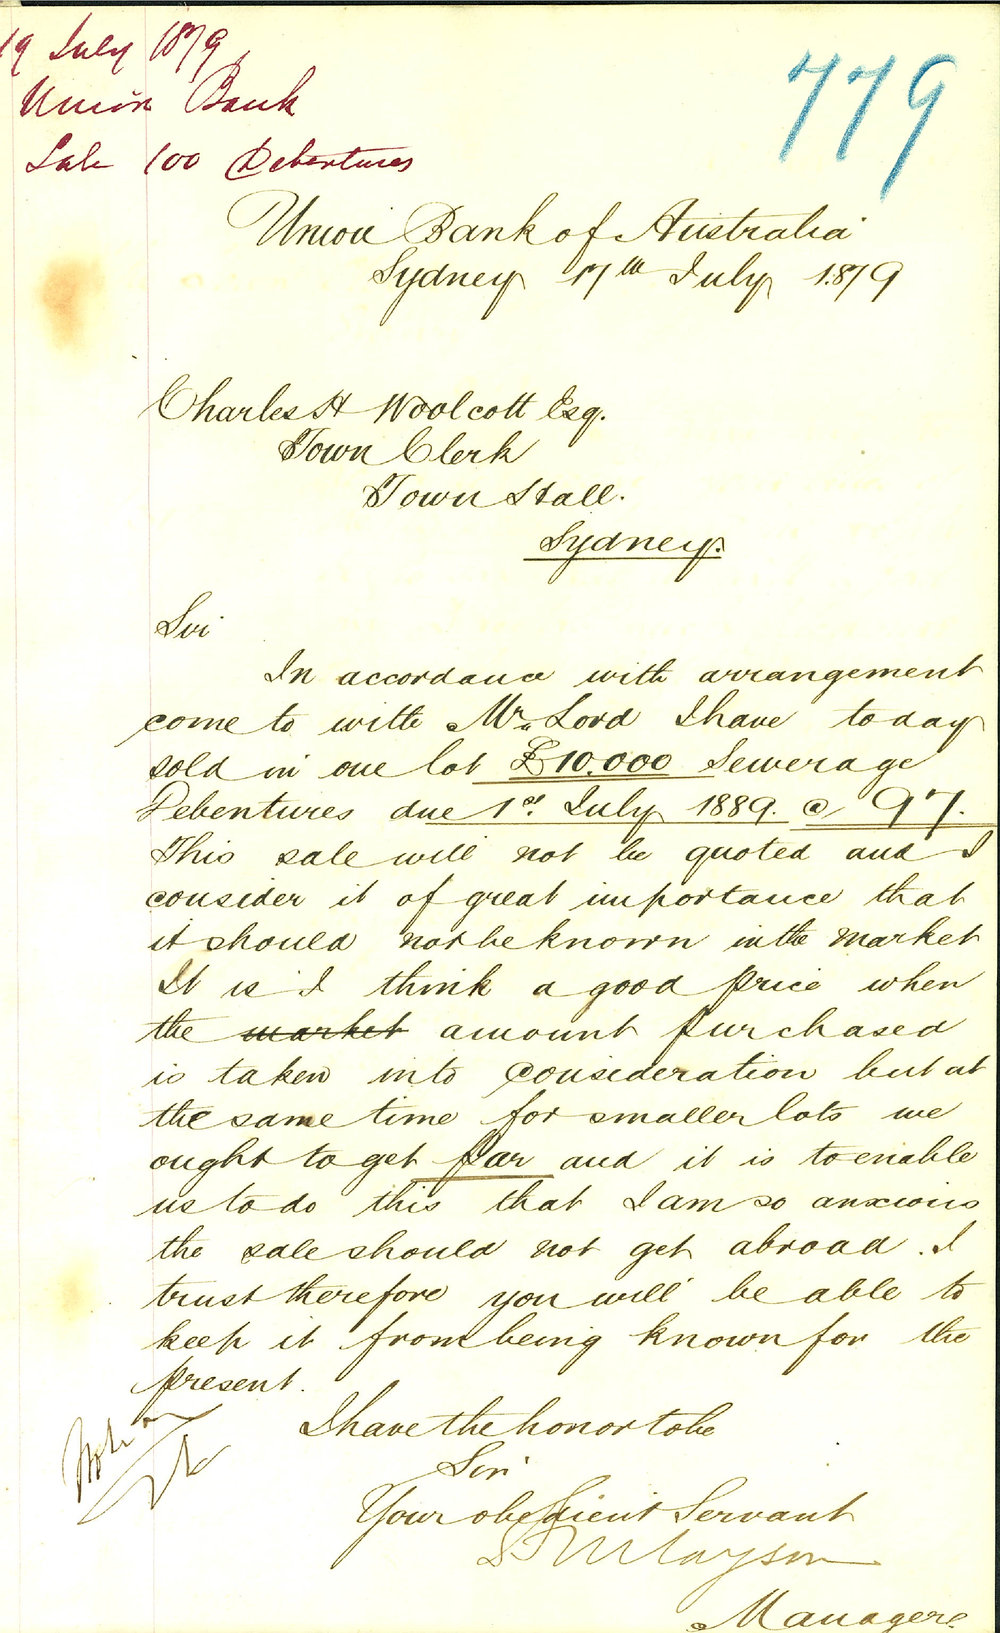 19 July 1879
Union Bank
Sale 100 Debentures
779
Union Bank of Australia
Sydney 17th July 1879
Charles H Woolcott Esq.
Town Clerk
Town Hall.
Sydney.
Sir
In accordance with arrangement
come to with Mr. Lord I have today
sold in one lot £10.000 Sewerage
Debentures due 1st. July 1889. @ 97.
This sale will not be quoted and I
consider it of great importance that
it should not be known in the market
It is I think a good price when
the market amount purchased
is taken into consideration but at
the same time for smaller lots we
ought to get par and it is to enable
us to do this that I am so anxious
the sale should not get abroad. I
trust therefore you will be able to
keep it from being known for the
present.
I have the honor to be
Sir
Your obedient Servant
Manager.